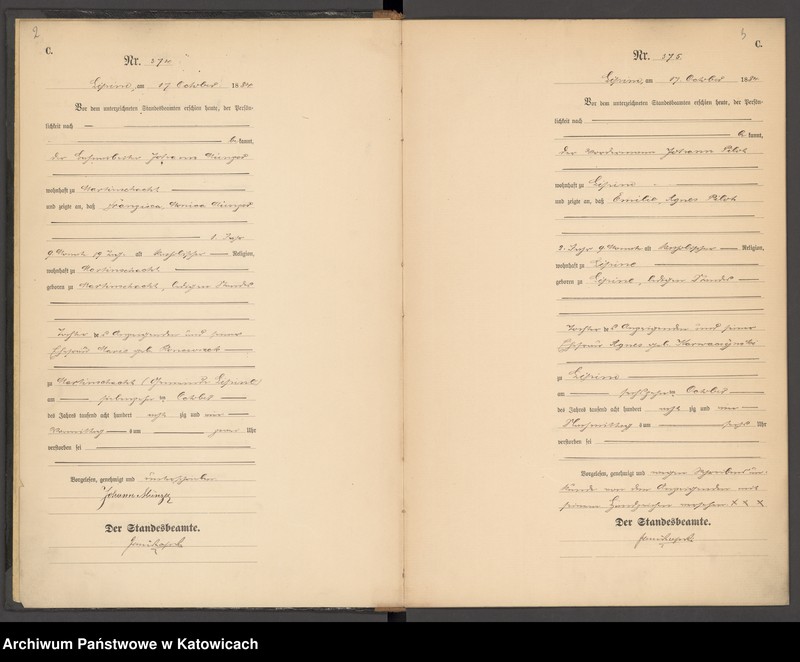 2
C.
Nr. 274
Lipine, am 17 October 1884
Vor dem unterzeichneten Standesbeamten erschien heute, der Persön-
lichkeit nach
be kannt,
der Johann
wohnhaft zu Martinschacht
und zeigte an, daß Franzisca, Monica
1. Jahr
9 Monate alt katholischer Religion,
wohnhaft zu Martinschacht
geboren zu Martinschacht, ledigen Standes
Tochter des Anzeigenden und seiner
Ehefrau Marie geb.
zu Martinschacht (Gemeinde Lipine)
am siebzehnten October
des Jahres tausend acht hundert acht zig und vier
Vormittag s um zwei Uhr
verstorben sei
Vorgelesen, genehmigt und unterschrieben
Johann
Der Standesbeamte.
3
C.
Nr. 275.
Lipine, am 17 October 1884
Vor dem unterzeichneten Standesbeamten erschien heute, der Persön-
lichkeit nach
be kannt,
der Johann
wohnhaft zu Lipine
und zeigte an, daß Emilie, Agnes
2 Jahr 9 Monate alt katholischer Religion,
wohnhaft zu Lipine
geboren zu Lipine, ledigen Standes
Tochter des Anzeigenden und seiner
Ehefrau Agnes geb.
zu Lipine
am sechszehnten October
des Jahres tausend acht hundert acht zig und vier
Nachmittag s um sechs Uhr
verstorben sei
Vorgelesen, genehmigt und wegen Schreibensun-
kunde von dem Anzeigenden mit
seinem Handzeichen versehen X X X
Der Standesbeamte.
Archiwum Państwowe w Katowicach